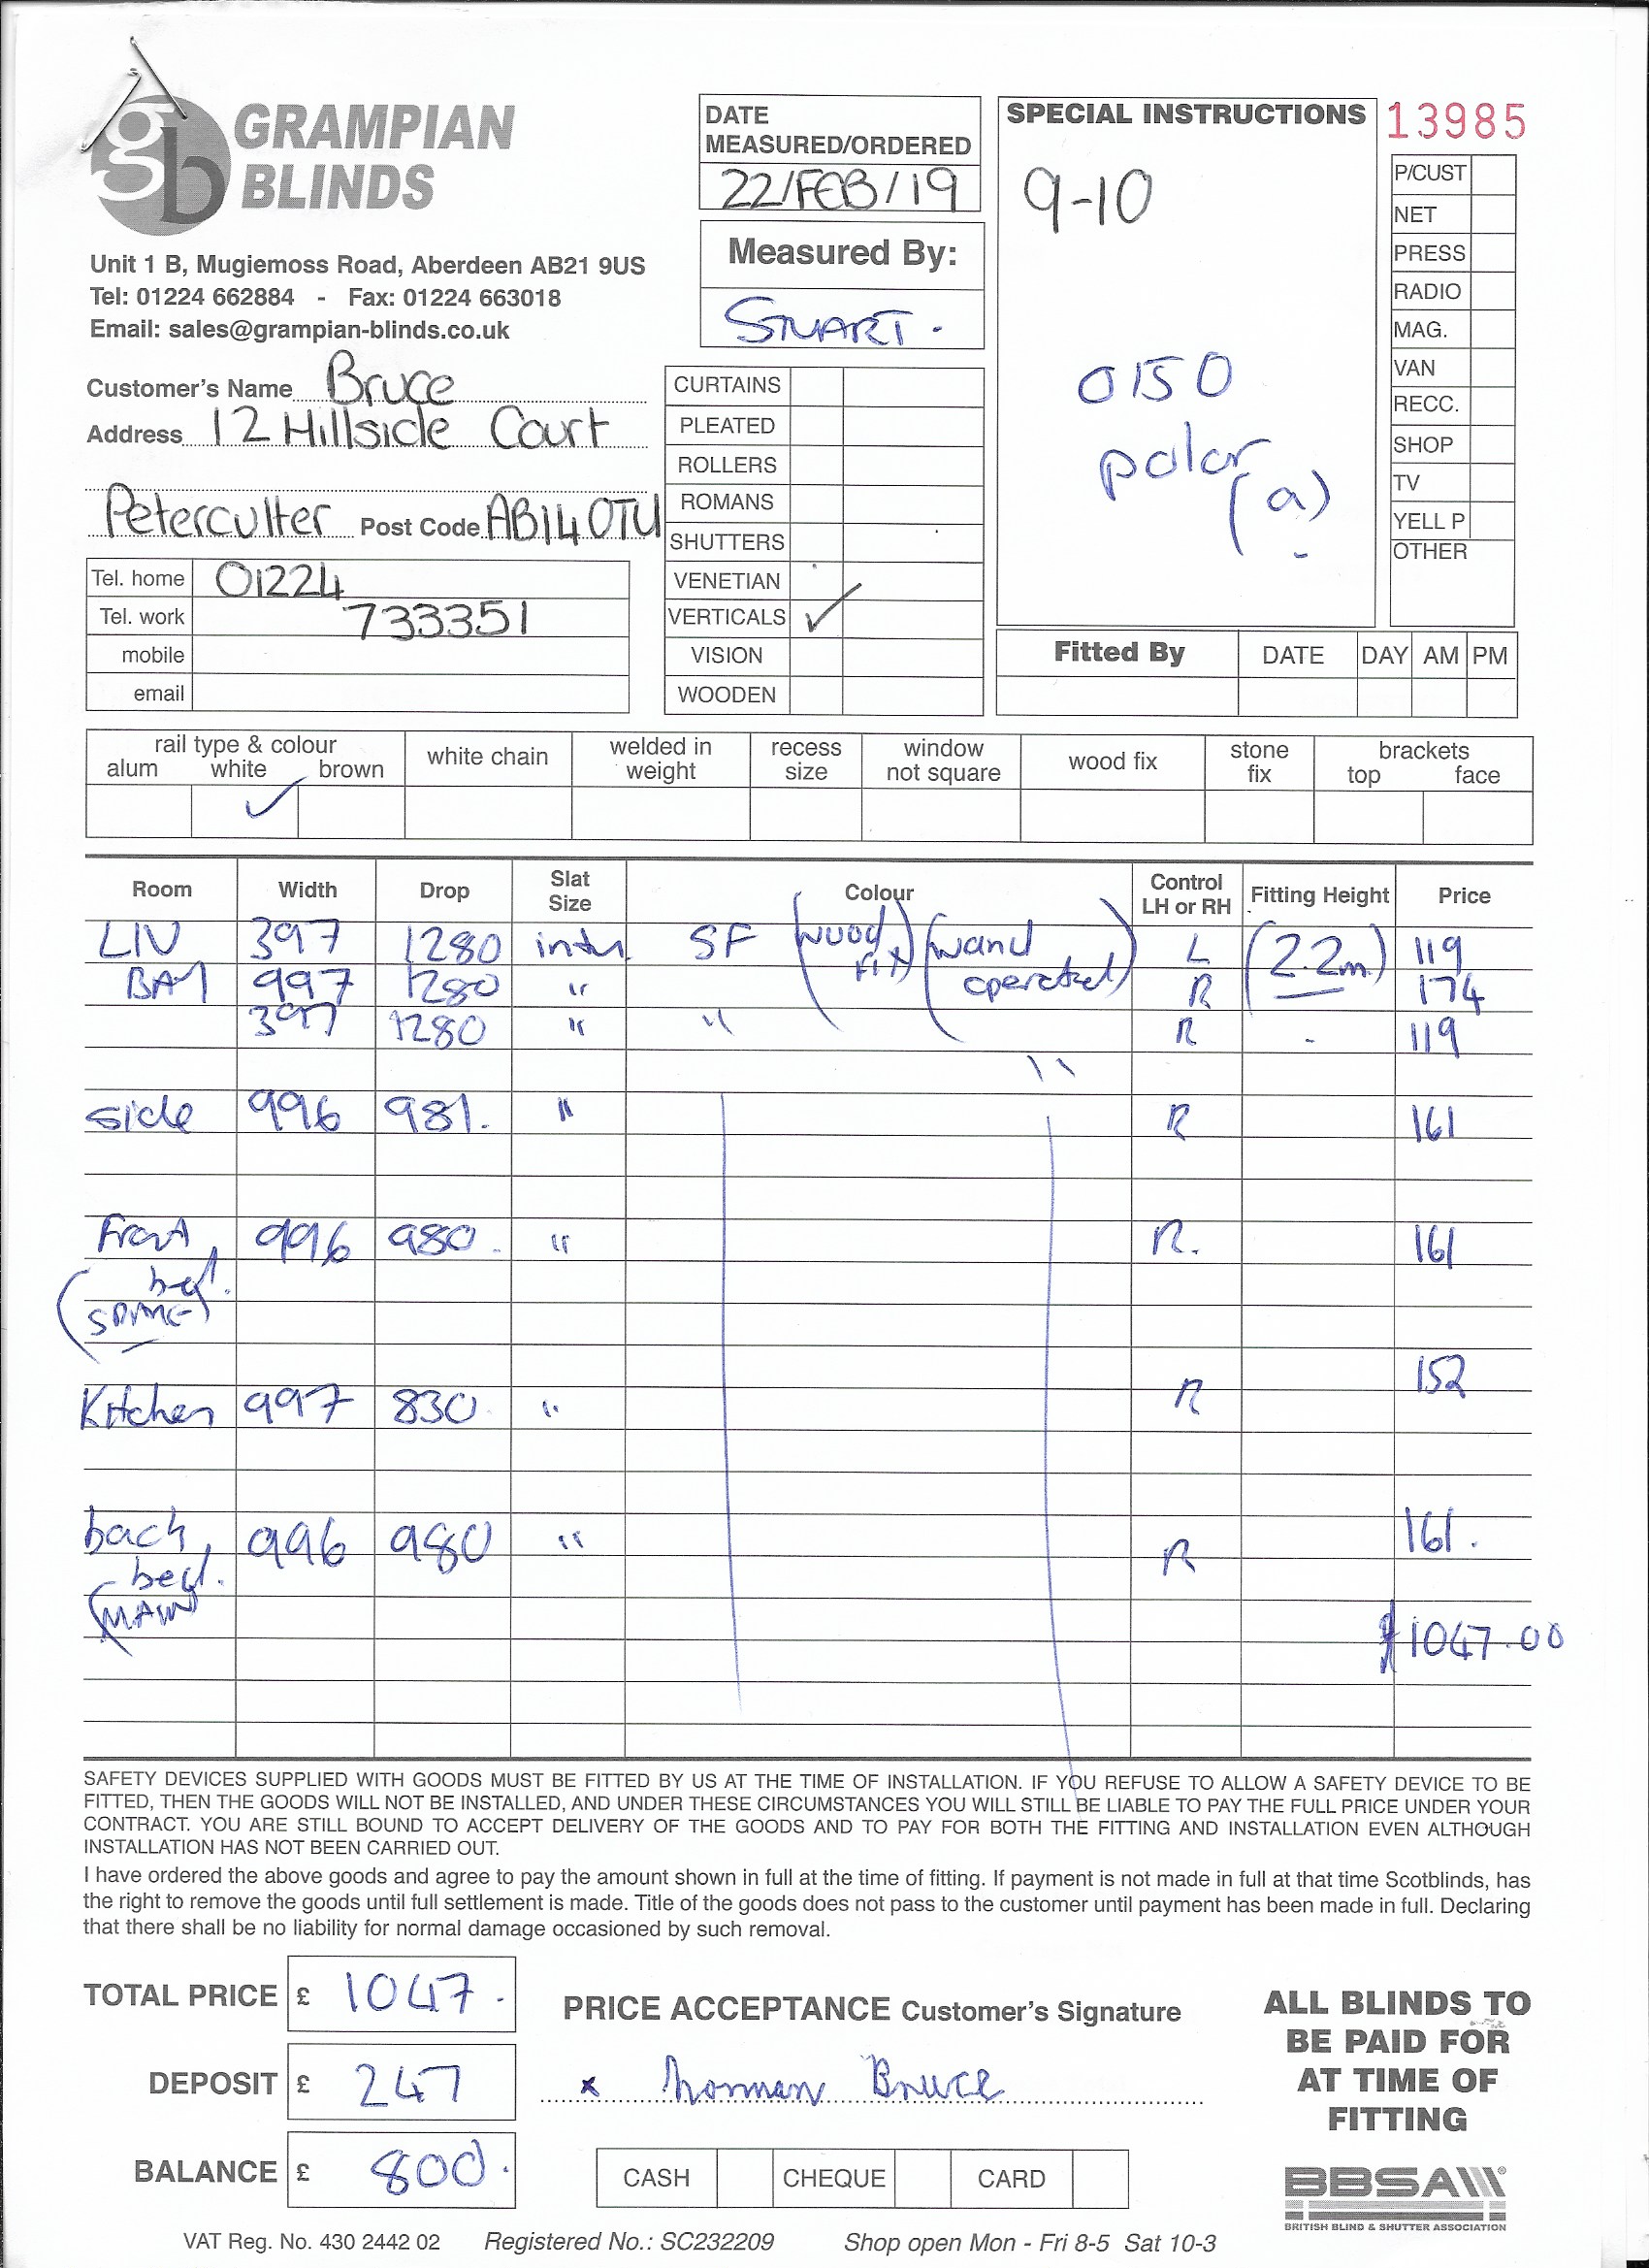 gb GRAMPIAN
BLINDS
Unit 1 B, Mugiemoss Road, Aberdeen AB21 9US
Tel: 01224 662884 - Fax: 01224 663018
Email: sales@grampian-blinds.co.uk
Customer's Name Bruce
Address 12 Hillside Court
Peterculter Post Code AB14 0TU
Tel. home 01224
Tel. work 733351
mobile
email
DATE
MEASURED/ORDERED
22/FEB/19
Measured By:
STUART.
CURTAINS
PLEATED
ROLLERS
ROMANS
SHUTTERS
VENETIAN
VERTICALS ✓
VISION
WOODEN
SPECIAL INSTRUCTIONS
9-10
0150
polar
(a)
13985
P/CUST
NET
PRESS
RADIO
MAG.
VAN
RECC.
SHOP
TV
YELL P
OTHER
Fitted By DATE DAY AM PM
rail type & colour white chain welded in weight recess size window not square wood fix stone fix brackets
alum white brown top face
✓
Room Width Drop Slat Size Colour Control LH or RH Fitting Height Price
LIV 397 1280 SF (wood fix) (wand operated) L (2.2m) 119
BAY 997 1280 " R 174
397 1280 " " R 119
" 
side 996 981. " R 161
Front 996 980. " R. 161
bed.
(SPARE)
Kitchen 997 830 " R 152
back 996 980 " R 161.
bed.
(MAIN)
1047.00
SAFETY DEVICES SUPPLIED WITH GOODS MUST BE FITTED BY US AT THE TIME OF INSTALLATION. IF YOU REFUSE TO ALLOW A SAFETY DEVICE TO BE
FITTED, THEN THE GOODS WILL NOT BE INSTALLED, AND UNDER THESE CIRCUMSTANCES YOU WILL STILL BE LIABLE TO PAY THE FULL PRICE UNDER YOUR
CONTRACT. YOU ARE STILL BOUND TO ACCEPT DELIVERY OF THE GOODS AND TO PAY FOR BOTH THE FITTING AND INSTALLATION EVEN ALTHOUGH
INSTALLATION HAS NOT BEEN CARRIED OUT.
I have ordered the above goods and agree to pay the amount shown in full at the time of fitting. If payment is not made in full at that time Scotblinds, has
the right to remove the goods until full settlement is made. Title of the goods does not pass to the customer until payment has been made in full. Declaring
that there shall be no liability for normal damage occasioned by such removal.
TOTAL PRICE £ 1047.
DEPOSIT £ 247
BALANCE £ 800.
PRICE ACCEPTANCE Customer's Signature
x Norman Bruce
CASH CHEQUE CARD
ALL BLINDS TO
BE PAID FOR
AT TIME OF
FITTING
BBSA
BRITISH BLIND & SHUTTER ASSOCIATION
VAT Reg. No. 430 2442 02 Registered No.: SC232209 Shop open Mon - Fri 8-5 Sat 10-3